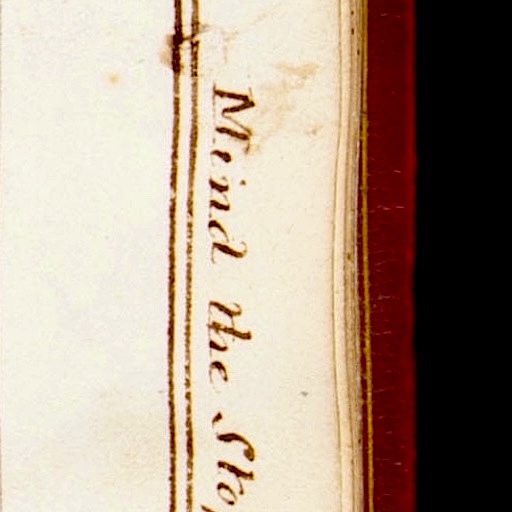 Mind the Sto